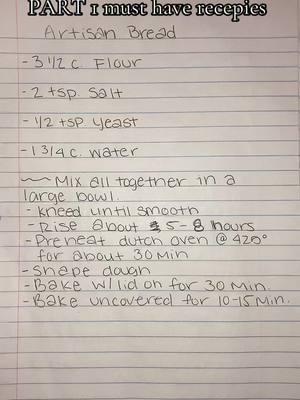 PART 1 must have recepies
Artisan Bread
- 3 1/2 c. Flour
- 2 tsp. Salt
- 1/2 tsp yeast
- 1 3/4 c. water
Mix all together in a
large bowl.
- Kneed until smooth
- Rise about 5-8 hours
- Preheat dutch oven @ 420°
for about 30 min
- Shape dough
- Bake w/ lid on for 30 Min.
- Bake uncovered for 10-15 Min.